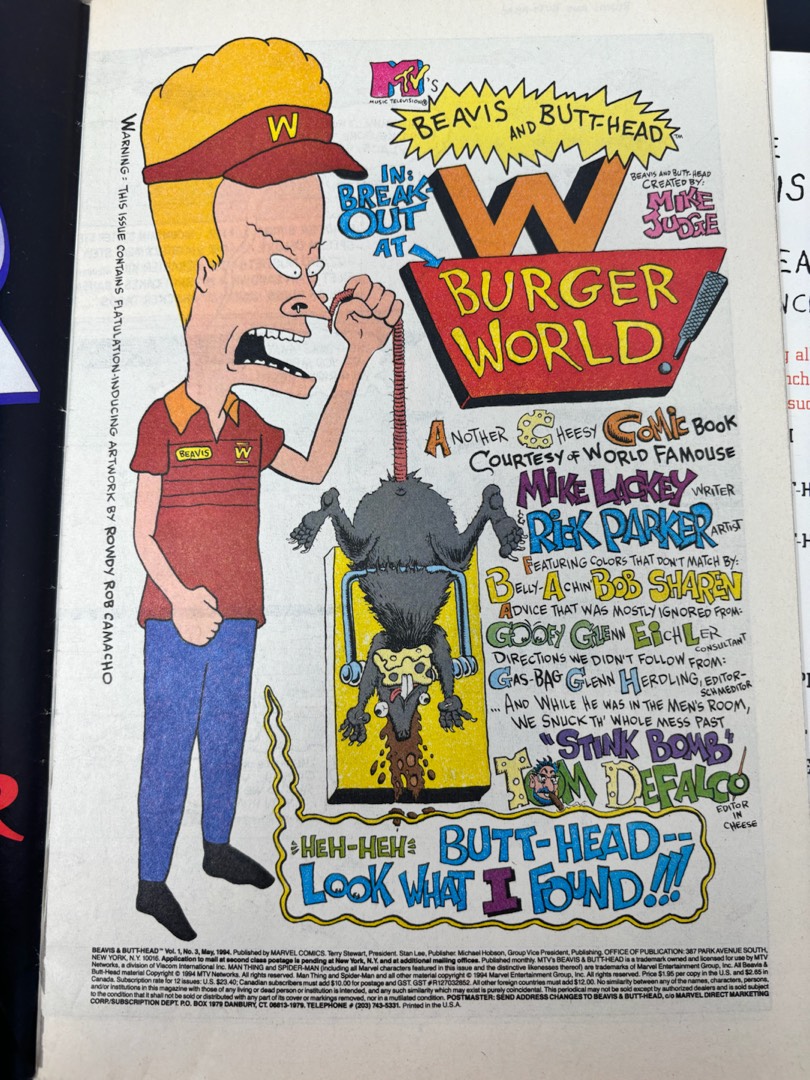 MTV'S
MUSIC TELEVISION®
BEAVIS
AND BUTT-HEAD™
W
IN:
BREAK-
OUT
AT
BEAVIS AND BUTT-HEAD
CREATED BY:
MIKE
JUDGE
W
BURGER
WORLD!
WARNING: THIS ISSUE CONTAINS FLATULATION-INDUCING ARTWORK BY ROWDY ROB CAMACHO
BEAVIS
W
ANOTHER CHEESY COMIC BOOK
COURTESY OF WORLD FAMOUSE
MIKE LACKEY WRITER
& RICK PARKER ARTIST
FEATURING COLORS THAT DON'T MATCH BY:
BELLY-ACHIN BOB SHAREN
ADVICE THAT WAS MOSTLY IGNORED FROM:
GOOFY GLENN EICHLER
CONSULTANT
DIRECTIONS WE DIDN'T FOLLOW FROM:
GAS-BAG GLENN HERDLING, EDITOR-
SCHMEDITOR
... AND WHILE HE WAS IN THE MEN'S ROOM,
WE SNUCK TH' WHOLE MESS PAST
"STINK BOMB"
TOM DEFALCO
EDITOR
IN
CHEESE
HEH-HEH: BUTT-HEAD--
LOOK WHAT I FOUND!!!
BEAVIS & BUTT-HEAD™ Vol. 1, No. 3, May, 1994. Published by MARVEL COMICS. Terry Stewart, President. Stan Lee, Publisher. Michael Hobson, Group Vice President, Publishing. OFFICE OF PUBLICATION: 387 PARK AVENUE SOUTH,
NEW YORK, N.Y. 10016. Application to mail at second class postage is pending at New York, N.Y. and at additional mailing offices. Published monthly. MTV's BEAVIS & BUTT-HEAD is a trademark owned and licensed for use by MTV
Networks, a division of Viacom International Inc. MAN THING and SPIDER-MAN (including all Marvel characters featured in this issue and the distinctive likenesses thereof) are trademarks of Marvel Entertainment Group, Inc. All Beavis &
Butt-Head material Copyright © 1994 MTV Networks. All rights reserved. Man Thing and Spider-Man and all other material copyright © 1994 Marvel Entertainment Group, Inc. All rights reserved. Price $1.95 per copy in the U.S. and $2.65 in
Canada. Subscription rate for 12 issues: U.S. $23.40; Canadian subscribers must add $10.00 for postage and GST. GST #R127032852. All other foreign countries must add $12.00. No similarity between any of the names, characters, persons,
and/or institutions in this magazine with those of any living or dead person or institution is intended, and any such similarity which may exist is purely coincidental. This periodical may not be sold except by authorized dealers and is sold subject
to the condition that it shall not be sold or distributed with any part of its cover or markings removed, nor in a mutilated condition. POSTMASTER: SEND ADDRESS CHANGES TO BEAVIS & BUTT-HEAD, c/o MARVEL DIRECT MARKETING
CORP./SUBSCRIPTION DEPT. P.O. BOX 1979 DANBURY, CT. 06813-1979. TELEPHONE # (203) 743-5331. Printed in the U.S.A.